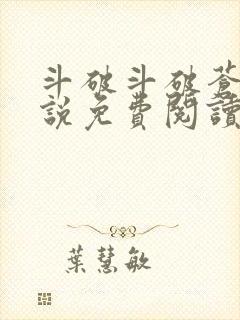 斗破斗破蒼
說免費閱讀
葉慧敏